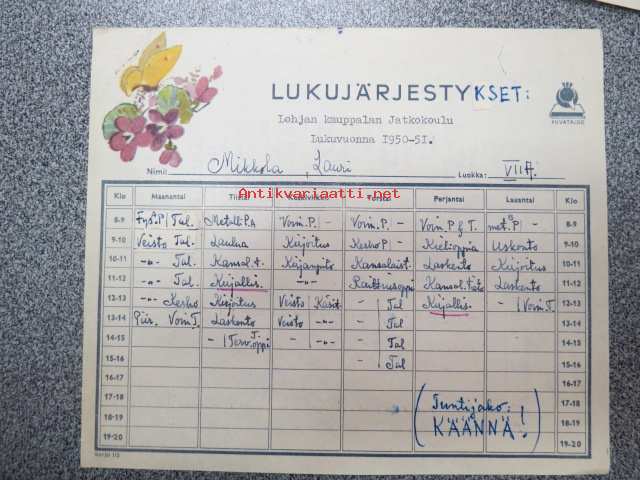 LUKUJÄRJESTYKSET:
KUVATAIDE
Lohjan kauppalan Jatkokoulu
Lukuvuonna 1950-51.
Nimi: Mikkola, Lauri Luokka: VIIA.
Antikvariaatti.net
Klo Maanantai Tiistai Keskiviikko Torstai Perjantai Lauantai Klo
8-9 Fys.P/Tal. Metalli P.A Voim.P./- Voim.P./- Voim P. & T. met P/- 8-9
9-10 Veisto Tal. Laulua Kirjoitus Kesko P/- Kielioppia Uskonto 9-10
10-11 -"- Tal. Kansal.t. Kirjanpito Kansalaist. Laskento Kirjoitus 10-11
11-12 -"- Tal. Kirjallis. -"- Raittiusoppi Kansal.tieto Laskento 11-12
12-13 -"- Kesko Kirjoitus Veisto/Käsit. -/Tal Kirjallis. -/Voim.T. 12-13
13-14 Piir. Voim.T. Laskento Veisto -"- -/Tal 13-14
14-15 -/Terv.T.oppi -/-"- -/Tal 14-15
15-16 -/Tal 15-16
16-17 16-17
17-18 (Tuntijako: 17-18
18-19 KÄÄNNÄ!) 18-19
19-20 19-20